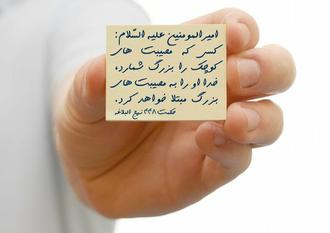 امیرالمومنین علیه السّلام:
کسی که مصیبت های
کوچک را بزرگ شمارد،
خدا او را به مصیبت های
بزرگ مبتلا خواهد کرد.
حکمت ۴۴۸ نهج البلاغه